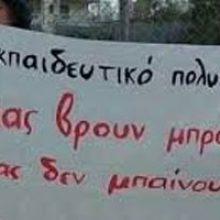 κπαιδευτικό πολυ
ας βρουν μπρο
ας δεν μπαίνου